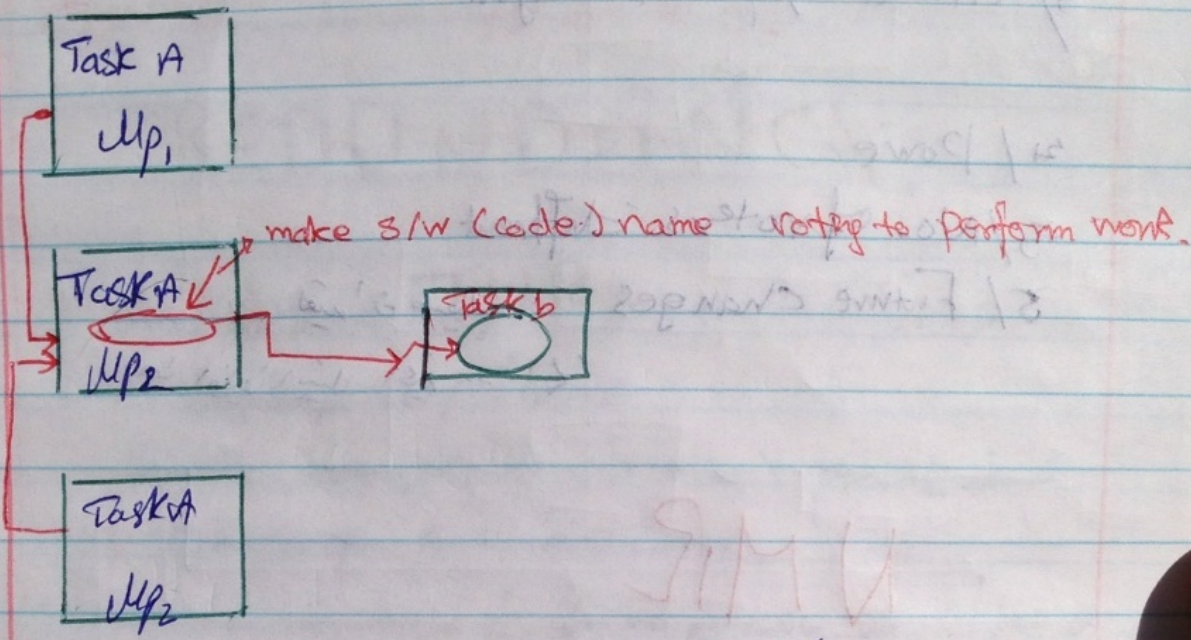 Task A
Mp1
make s/w (code) name voting to perform work.
Task A
Task b
Mp2
Task A
Mp2